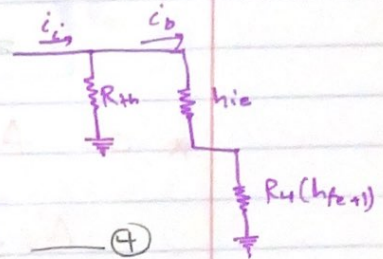 i_i i_b
R_th hie
R_4(h_fe+1)
④